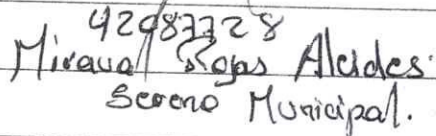 42087728
Miraval Rojas Alcides.
Sereno Municipal.